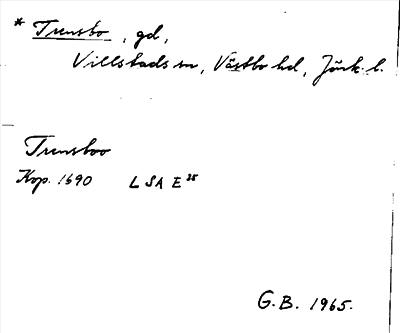 * Trensbo, gd,
Villstads sn, Västbo hd, Jönk. l.
Trensboo
Kop. 1690 LSA E 25
G.B. 1965.